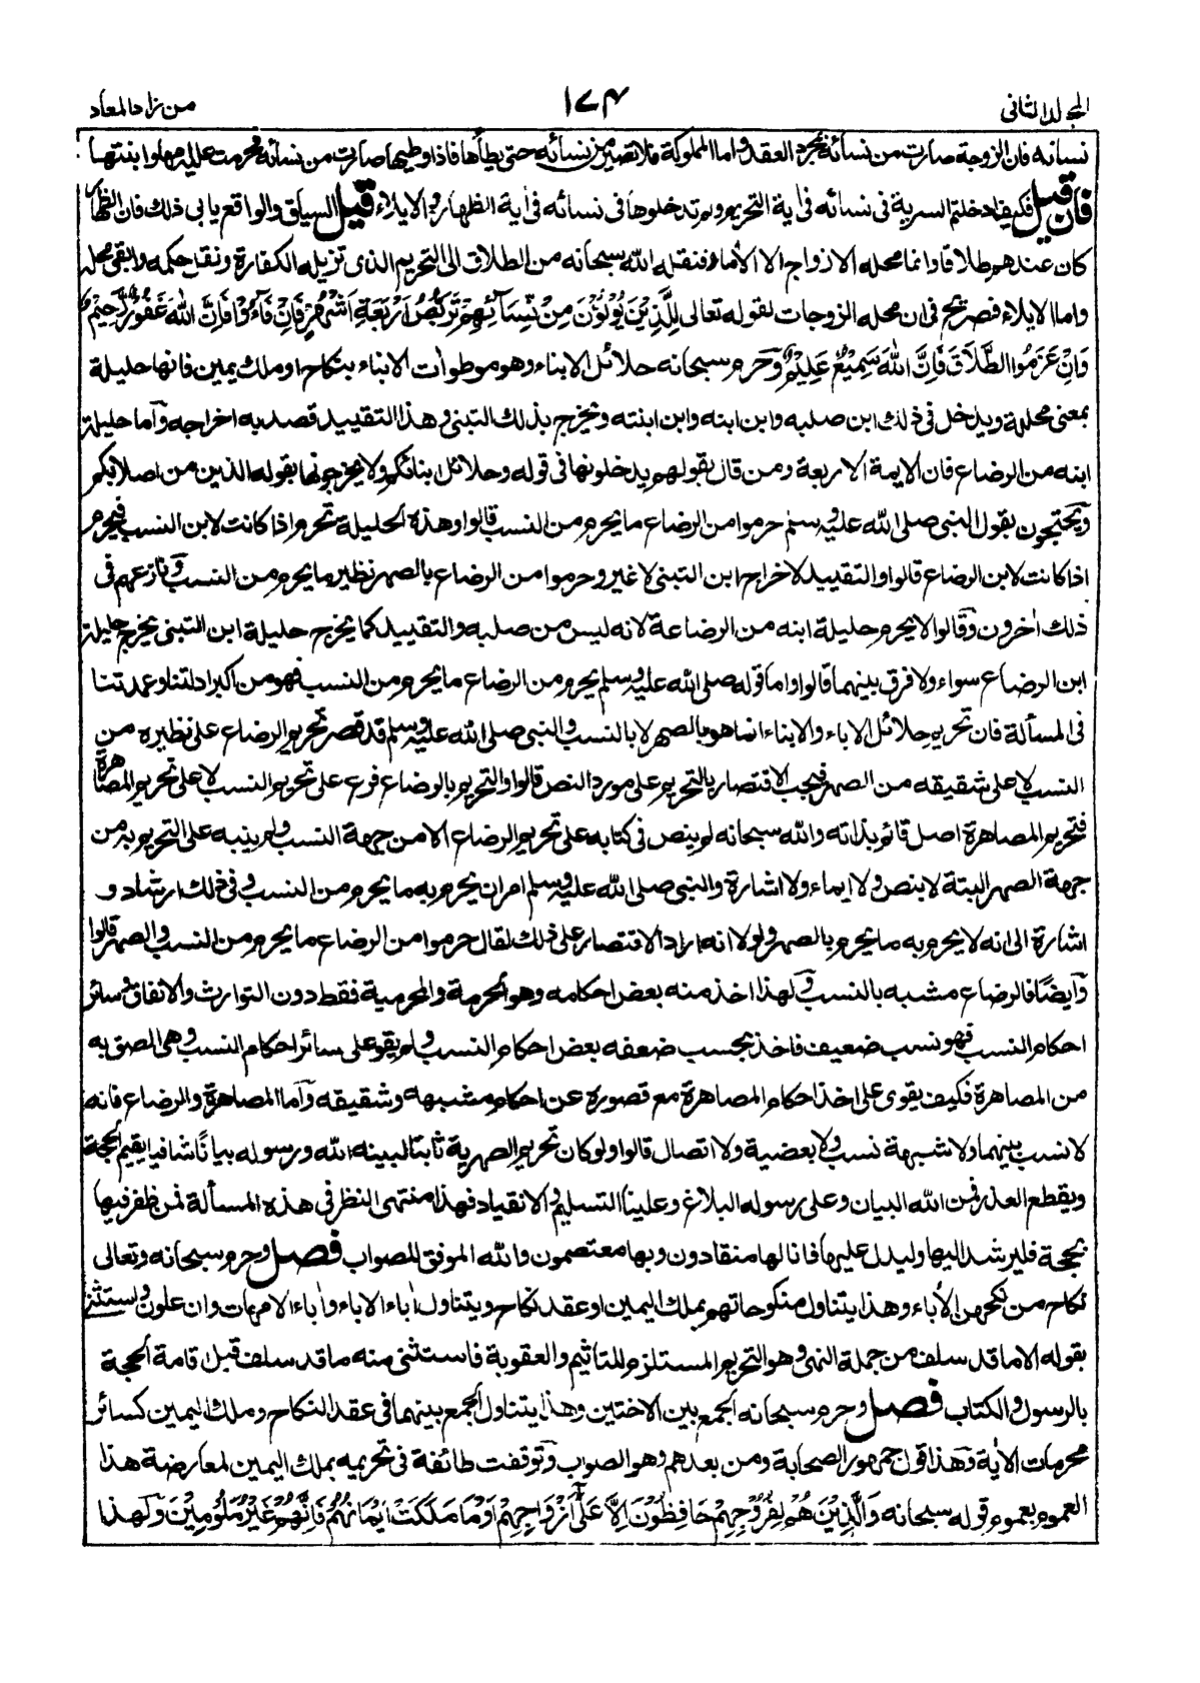 المجلد الثانى
١٧٤
من زاد المعاد
نسائه فان الزوجة صارت من نسائه بمجرد العقد واما المملوكة فلا تصير من نسائه حتى يطأها فاذا وطيها صارت من نسائه فحرمت عليه امها وابنتها
فان قيل فكيف ادخلتم السرية فى نسائه فى أية التحريم ولم تدخلوها فى نسائه فى أية الظهار والايلاء قيل السياق والواقع يابى ذلك فان الظهار
كان عندهم طلاقا وانما محله الازواج لا الاماء فنقله الله سبحانه من الطلاق الى التحريم الذى تزيله الكفارة ونقل حكمه وابقى محله
واما الايلاء فصريح فى ان محله الزوجات لقوله تعالى لِلَّذِيْنَ يُؤْلُوْنَ مِنْ نِّسَآئِهِمْ تَرَبُّصُ اَرْبَعَةِ اَشْهُرٍ فَاِنْ فَآءُوْا فَاِنَّ اللهَ غَفُوْرٌ رَّحِيْمٌ
وَاِنْ عَزَمُوا الطَّلَاقَ فَاِنَّ اللهَ سَمِيْعٌ عَلِيْمٌ وحرم سبحانه حلائل الابناء وهو موطوأت الابناء بنكاح او ملك يمين فانها حليلة
بمعنى محللة ويدخل فى ذلك ابن صلبه وابن ابنه وابن ابنته ويخرج بذلك التبنى وهذا التقييد قصد به اخراجه وأما حليلة
ابنه من الرضاع فان الايمة الاربعة ومن قال بقولهم يدخلونها فى قوله وحلائل ابنائكم ولا يخرجونها بقوله الذين من اصلابكم
ويحتجون بقول النبى صلى الله عليه وسلم حرموا من الرضاع ما يحرم من النسب قالوا وهذه الحليلة تحرم اذا كانت لابن النسب فيحرم
اذا كانت لابن الرضاع قالوا والتقييد لاخراج ابن التبنى لا غير وحرموا من الرضاع بالصهر نظير ما يحرم من النسب ونازعهم فى
ذلك أخرون وقالوا لا يحرم حليلة ابنه من الرضاعة لانه ليس من صلبه والتقييد كما يخرج حليلة ابن التبنى يخرج حليلة
ابن الرضاع سواء ولا فرق بينهما قالوا واما قوله صلى الله عليه وسلم يحرم من الرضاع ما يحرم من النسب فهو من اكبر ادلتنا وعمدتنا
فى المسألة فان تحريم حلائل الاباء والابناء انما هو بالصهر لا بالنسب والنبى صلى الله عليه وسلم قد قصر تحريم الرضاع على نظيره من
النسب لا على شقيقه من الصهر فيجب الاقتصار بالتحريم على مورد النص قالوا والتحريم بالرضاع فرع على تحريم النسب لا على تحريم المصاهرة
فتحريم المصاهرة اصل قائم بذاته والله سبحانه لم ينص فى كتابه على تحريم الرضاع الا من جهة النسب ولم ينبه على التحريم به من
جهة الصهر البتة لا بنص ولا ايماء ولا اشارة والنبى صلى الله عليه وسلم امر ان يحرم به ما يحرم من النسب وفى ذلك ارشاد و
اشارة الى انه لا يحرم به ما يحرم بالصهر ولولا انه اراد الاقتصار على ذلك لقال حرموا من الرضاع ما يحرم من النسب والصهر قالوا
وأيضًا فالرضاع مشبه بالنسب ولهذا اخذ منه بعض احكامه وهو الحرمة والمحرمية فقط دون التوارث والانفاق وسائر
احكام النسب فهو نسب ضعيف فاخذ بحسب ضعفه بعض احكام النسب ولم يقو على سائر احكام النسب وهى الصق به
من المصاهرة فكيف يقوى على اخذ احكام المصاهرة مع قصوره عن احكام مشبهه وشقيقه وأما المصاهرة والرضاع فانه
لا نسب بينهما ولا شبهة نسب ولا بعضية ولا اتصال قالوا ولو كان تحريم الصهرية ثابتا لبينه الله ورسوله بيانًا شافيا يقيم الحجة
ويقطع العذر فمن الله البيان وعلى رسوله البلاغ وعلينا التسليم والانقياد فهذا منتهى النظر فى هذه المسألة فمن ظفر فيها
بحجة فليرشد اليها وليدل عليها فانا لها منقادون وبها معتصمون والله الموفق للصواب فصل وحرم سبحانه وتعالى
نكاح من نكحهن الأباء وهذا يتناول منكوحاتهم بملك اليمين او عقد نكاح ويتناول اباء الاباء وأباء الامهات وان علون واستثنى
بقوله الا ما قد سلف من جملة النهى وهو التحريم المستلزم للتأثيم والعقوبة فاستثنى منه ما قد سلف قبل قامة الحجة
بالرسول والكتاب فصل وحرم سبحانه الجمع بين الاختين وهذا يتناول الجمع بينهما فى عقد النكاح وملك اليمين كسائر
محرمات الأية وهذا قول جمهور الصحابة ومن بعدهم وهو الصواب وتوقفت طائفة فى تحريمه بملك اليمين لمعارضة هذا
العموم بعموم قوله سبحانه وَالَّذِيْنَ هُمْ لِفُرُوْجِهِمْ حَافِظُوْنَ اِلَّا عَلٰى اَزْوَاجِهِمْ اَوْ مَا مَلَكَتْ اَيْمَانُهُمْ فَاِنَّهُمْ غَيْرُ مَلُوْمِيْنَ ولهذا